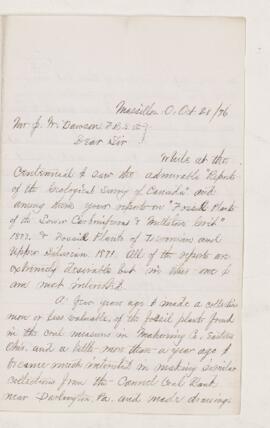 Massillon O. Oct 28/76
Mr J. W. Dawson F.R.S. &c
Dear Sir
While at the
Centennial I saw the admirable "Reports
of the Geological Survey of Canada" and
among them your reports on "Fossil Plants
of the Lower Carboniferous & Millstone Grit"
1873, & Fossil Plants of Devonian and
Upper Silurian 1871. All of the reports are
extremely desirable but in these one I
am most interested.
A few years ago I made a collection
more or less valuable, of the fossil plants found
in the coal measures in Mahoning Co, Eastern
Ohio, and a little more than a year ago I
became much interested in making similar
collections from the Cannel Coal Bank
near Darlington, Pa. and made drawings